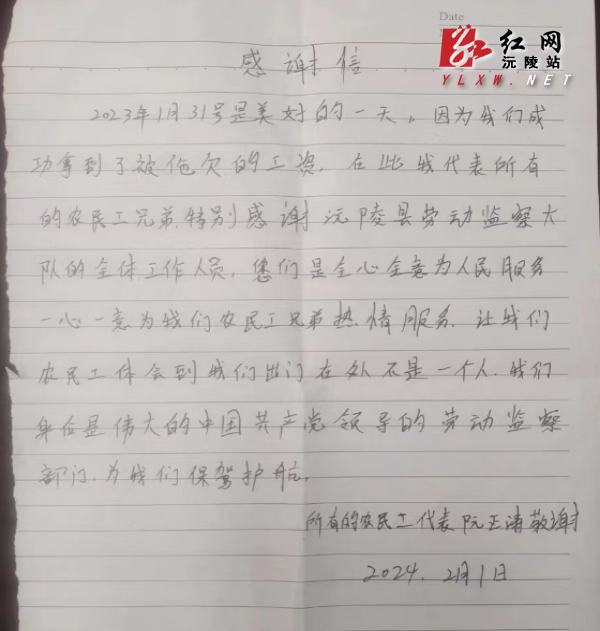 Date
红网
沅陵站
YLXW.NET
感谢信
2023年1月31号是美好的一天。因为我们成
功拿到了被拖欠的工资。在此我代表所有
的农民工兄弟.特别感谢沅陵县劳动监察大
队的全体工作人员.您们是全心全意为人民服务
一心一意为我们农民工兄弟热情服务.让我们
农民工体会到我们出门在外不是一个人.我们
身后是伟大的中国共产党领导的劳动监察
部门.为我们保驾护航。
所有的农民工代表阮正清敬谢
2024.2月1日